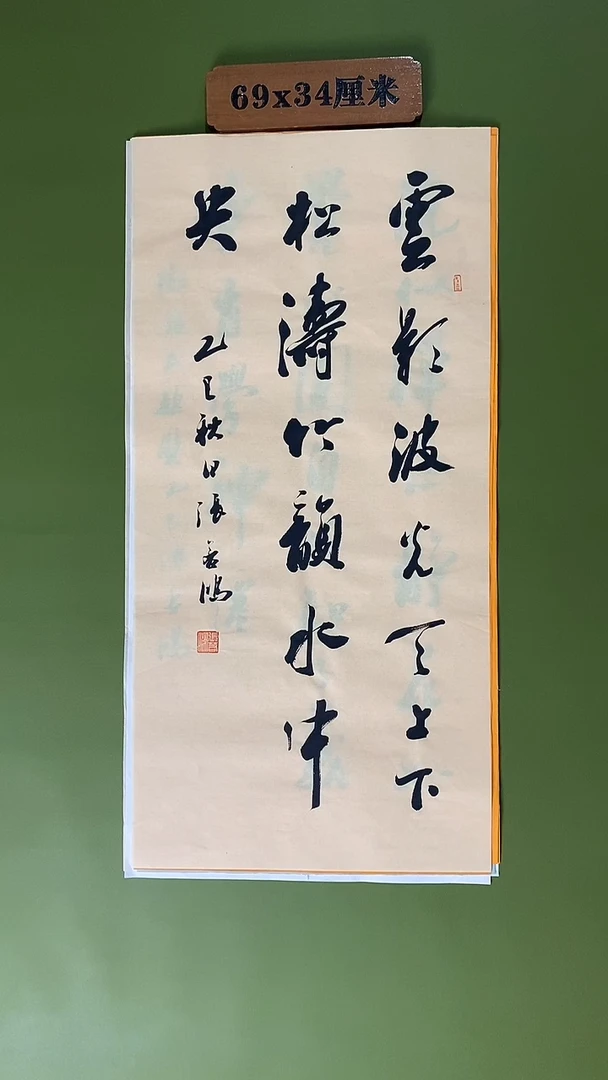 69x34厘米
雲影波光天上下
松濤竹韻水中
央
乙巳秋日張善鴻